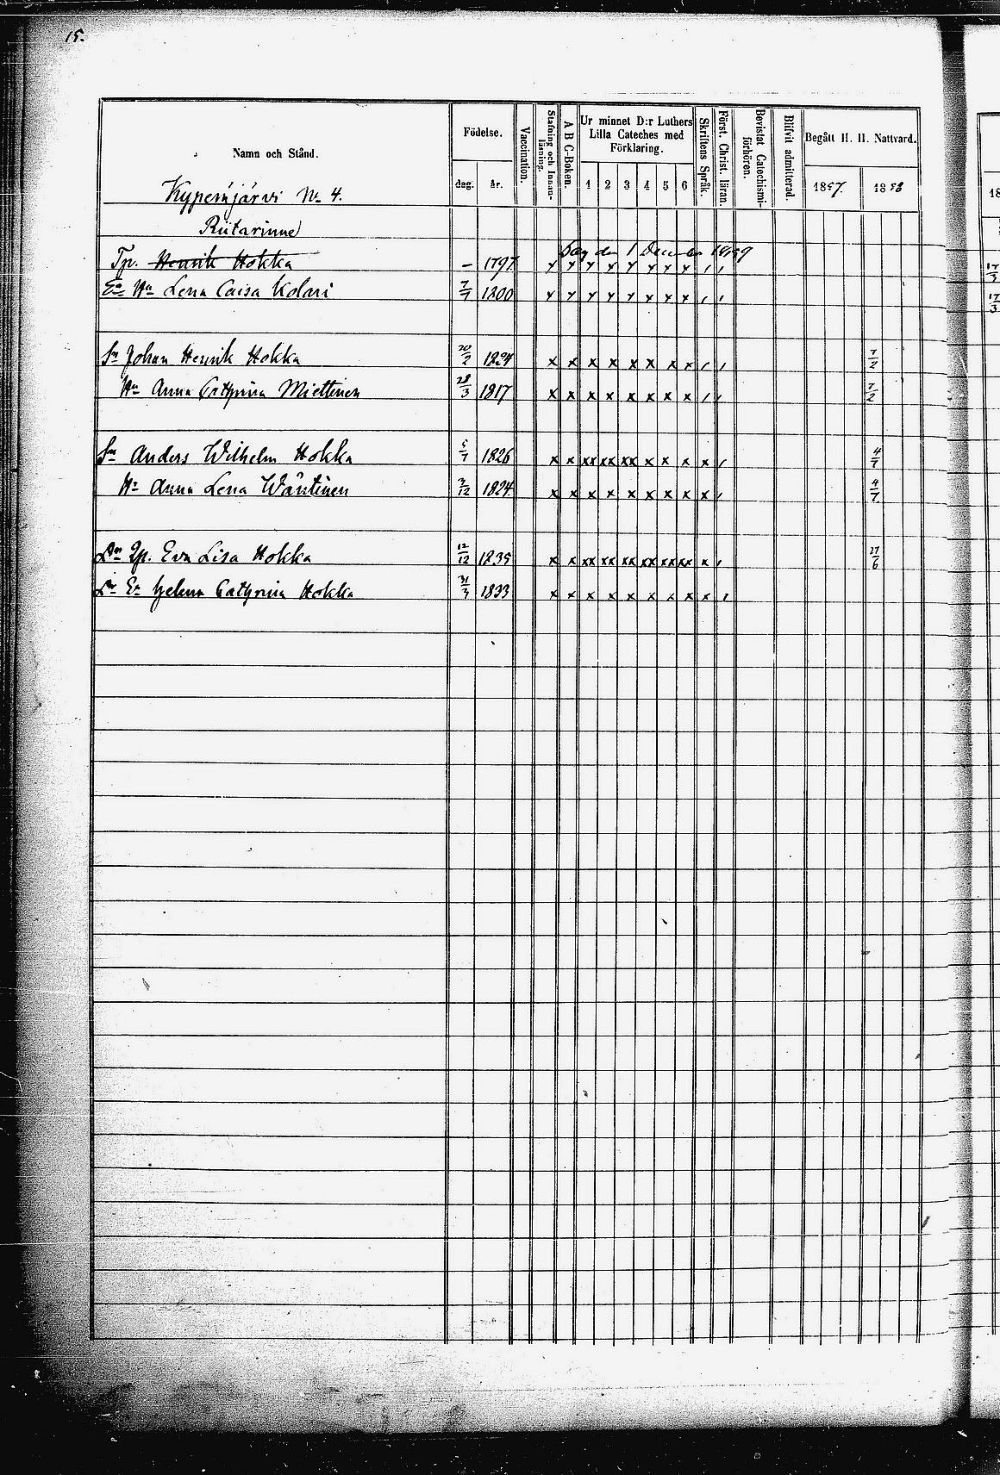 15.
Namn och Stånd.
Födelse.
dag. år.
Vaccination.
Stafning och Innan-läsning.
A B C-Boken.
Ur minnet D:r Luthers Lilla Cateches med Förklaring.
1 2 3 4 5 6
Skriftens Språk.
Först. Christ. läran.
Bevistat Catechismi-förhören.
Blifvit admitterad.
Begått H. H. Nattvard.
1857. 1858
18
Kypenjärvi No 4.
Riitarinne
Död den 1 December 1859
Tp. Henrik Hokka — 1797 x x x x x x x x x x , ,
Ea Hu Lena Caisa Kolari 7/7 1800 x x x x x x x x , ,
17/3
17/3
Sn Johan Henrik Hokka 20/2 1824 x x x x x x x x , , 7/2
Hu Anna Cathrina Miettinen 28/3 1817 x x x x x x x x , , 7/2
Sn Anders Wilhelm Hokka 5/7 1826 x x xx xx xx x x x x , 4/7
Hu Anna Lena Wäntinen 3/12 1824 x x x x x x x x x , 4/7
Dr Qp. Eva Lisa Hokka 12/12 1835 x x xx xx xx xx xx xx x , 27/6
Dr Ea Helena Cathrina Hokka 31/3 1833 x x x x x x x x x ,